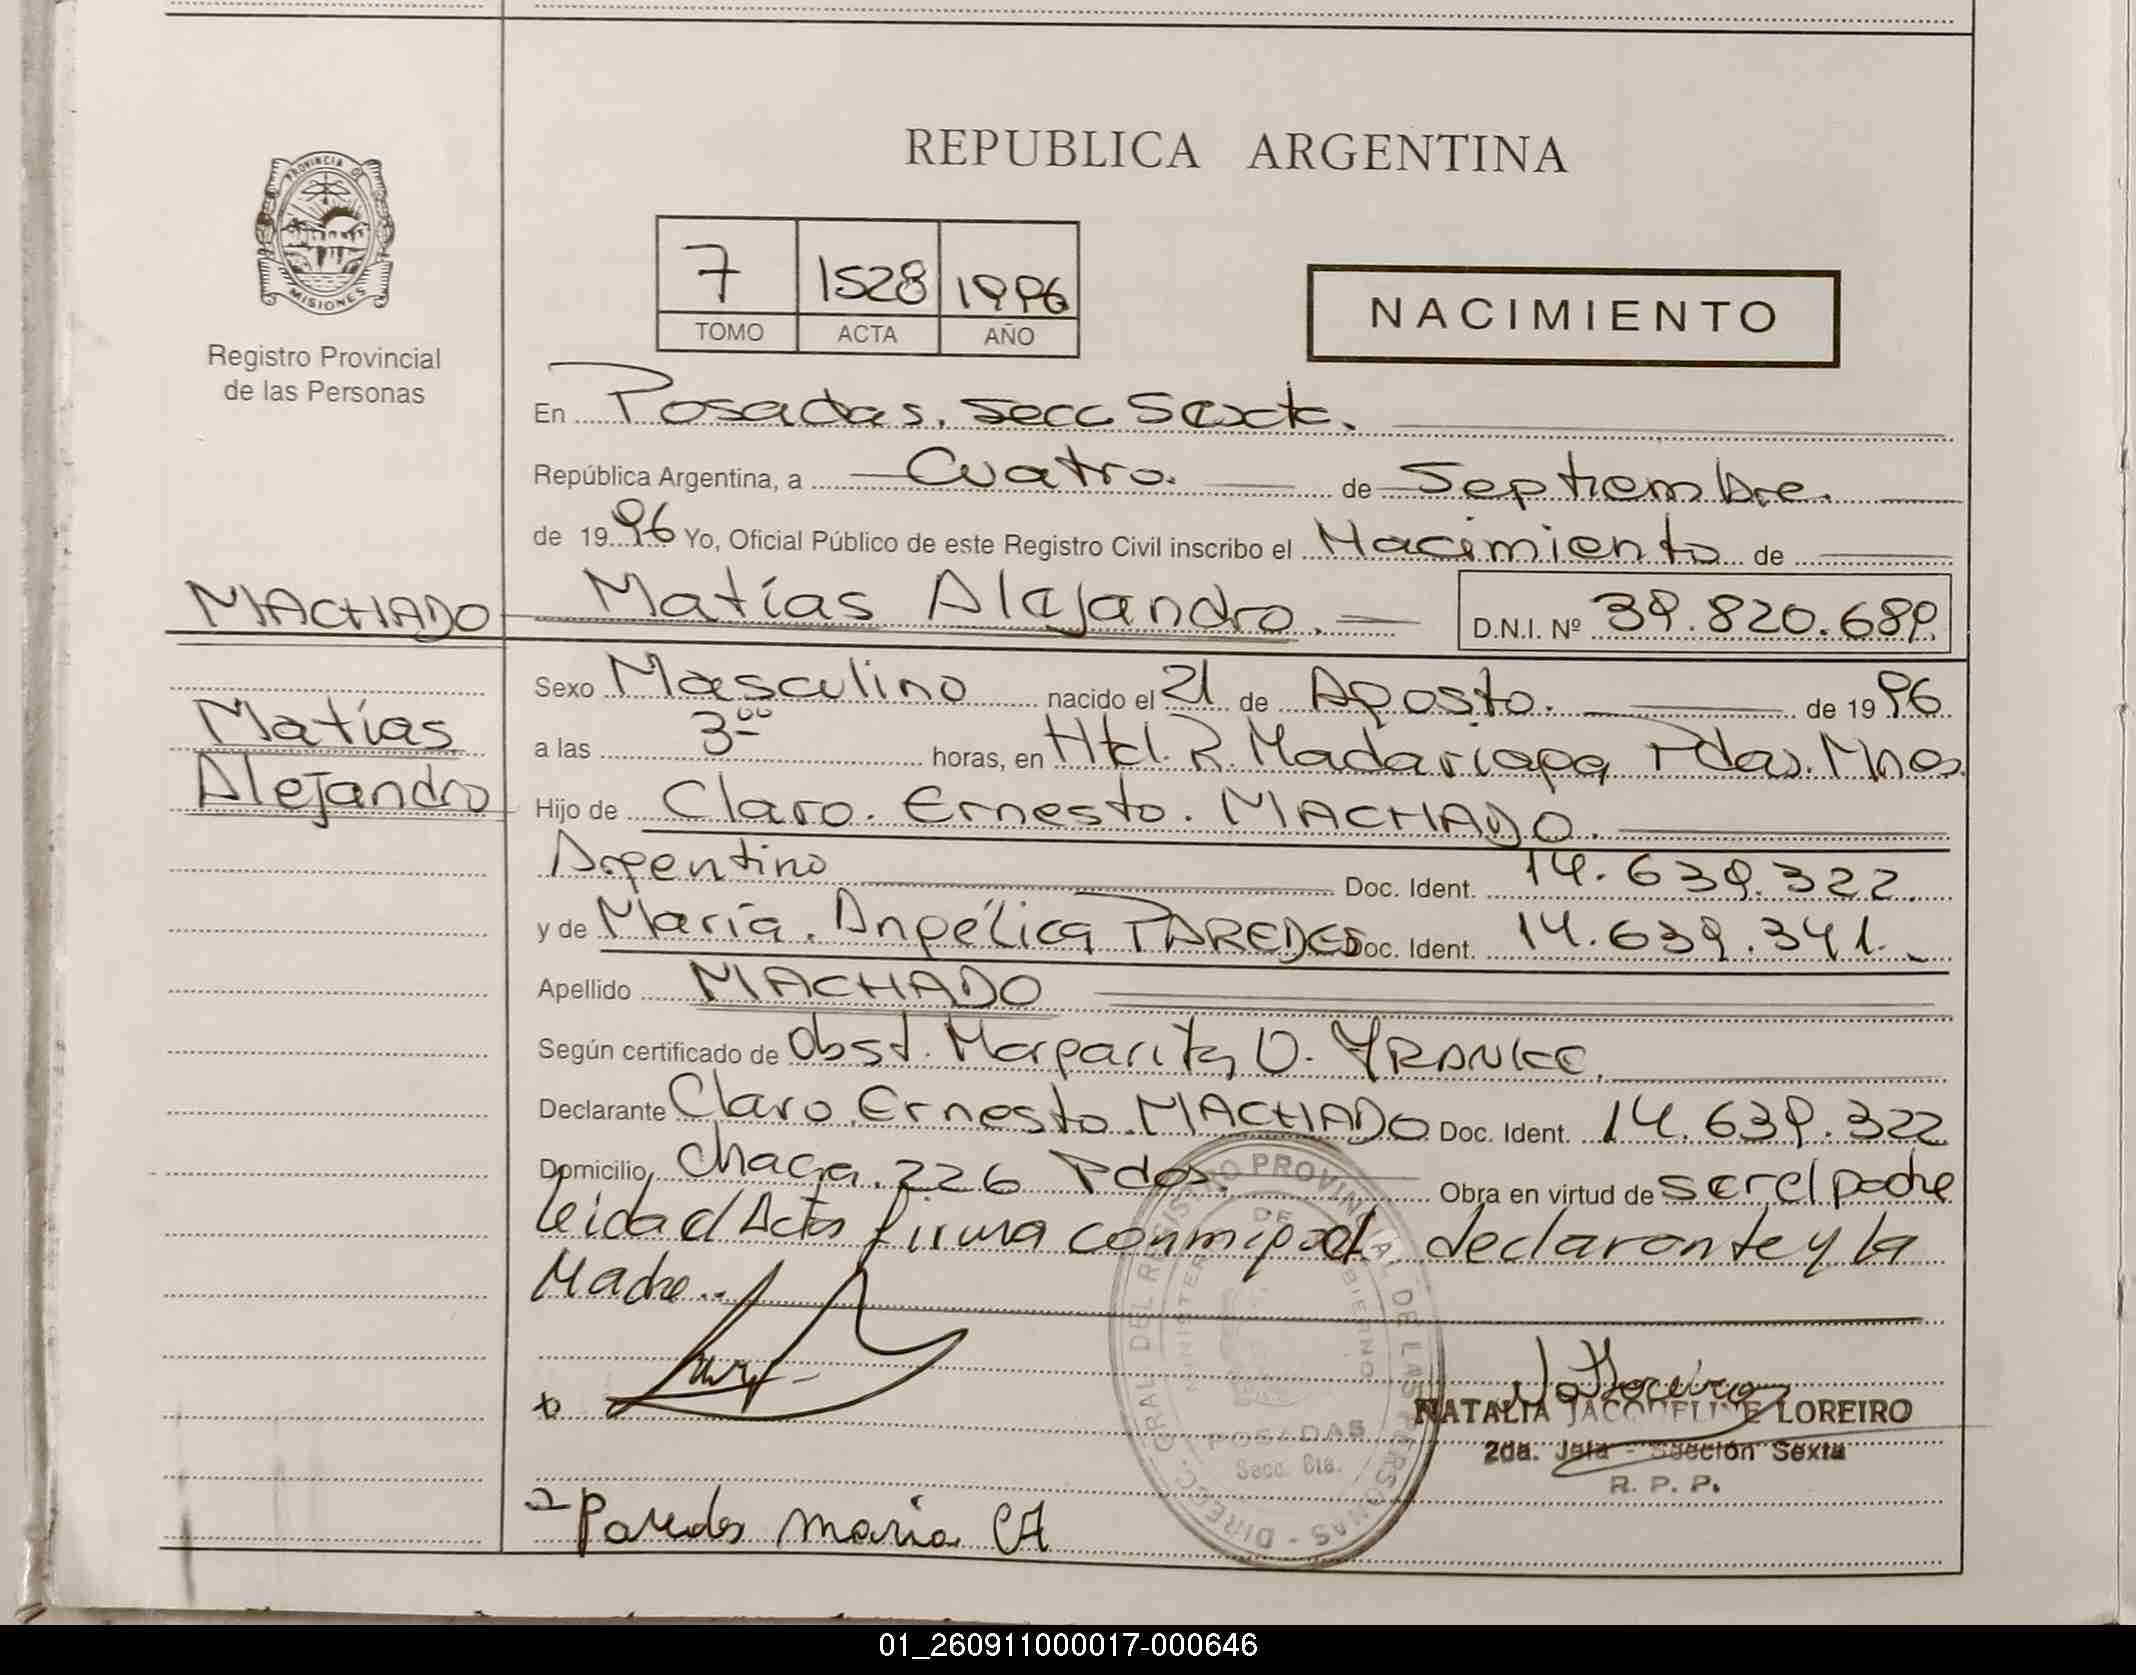 REPUBLICA ARGENTINA
PROVINCIA DE
MISIONES
Registro Provincial
de las Personas
7 1528 1996
TOMO ACTA AÑO
NACIMIENTO
En Posadas, Secc Sexta.
República Argentina, a Cuatro. de Septiembre.
de 1996 Yo, Oficial Público de este Registro Civil inscribo el Nacimiento de
MACHADO Matías Alejandro. D.N.I. Nº 39.820.689
Sexo Masculino nacido el 21 de Agosto. de 1996
Matías
a las 3⁰⁰ horas, en Htal. R. Madariaga Pdas. Mnes.
Alejandro
Hijo de Claro. Ernesto. MACHADO.
Argentino Doc. Ident. 14.639.322.
y de María. Angélica PAREDES Doc. Ident. 14.639.341.
Apellido MACHADO
Según certificado de Obst. Margarita O. YRANKE.
Declarante Claro. Ernesto. MACHADO Doc. Ident. 14.639.322
Domicilio Chaca. 226 Pdas. Obra en virtud de ser el padre
leida el Acta firma conmigo el declarante y la
Madre.
DIRECC. GRAL. DEL REGISTRO PROVINCIAL DE LAS PERSONAS
MINISTERIO DE GOBIERNO
POSADAS
Secc. 6ta.
NATALIA JACQUELINE LOREIRO
2da. Jefa - Sección Sexta
R. P. P.
Paredes maria A
01_260911000017-000646